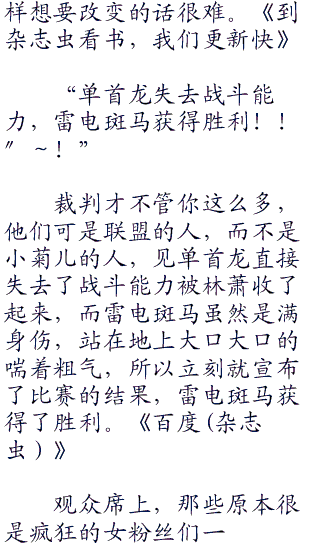 样想要改变的话很难。《到
杂志虫看书，我们更新快》
“单首龙失去战斗能
力，雷电斑马获得胜利！！
〞~！”
裁判才不管你这么多，
他们可是联盟的人，而不是
小菊儿的人，见单首龙直接
失去了战斗能力被林萧收了
起来，而雷电斑马虽然是满
身伤，站在地上大口大口的
喘着粗气，所以立刻就宣布
了比赛的结果，雷电斑马获
得了胜利。《百度(杂志
虫）》
观众席上，那些原本很
是疯狂的女粉丝们一